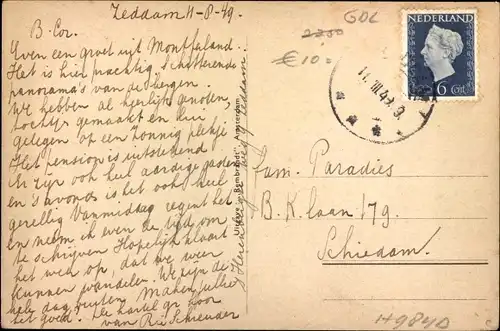 Zeddam 11-8-49.
B. Cor.
Even een groet uit Montferland.
Het is hier prachtig. Schitterende
panorama's van de bergen.
We hebben al heerlijk genoten,
tochten gemaakt en
gelegen op een zonnig plekje
Het pension is uitstekend
er zijn ook heel aardige
en 's avonds is het ook heel
gezellig Vanmiddag regent het
en neem ik even de tijd om
te schrijven Hopelijk klaart
het weer op, dat we weer
kunnen wandelen. We zijn de
hele dag buiten Maken jullie
het goed. De hartel. gr. voor
van
Zeddam
Uitgave „Rembrandt”, Amsterdam
GDL
2250
€10=
NEDERLAND
6 Cnt
Fam. Paradies
B. K. laan 179.
Schiedam.
H984D